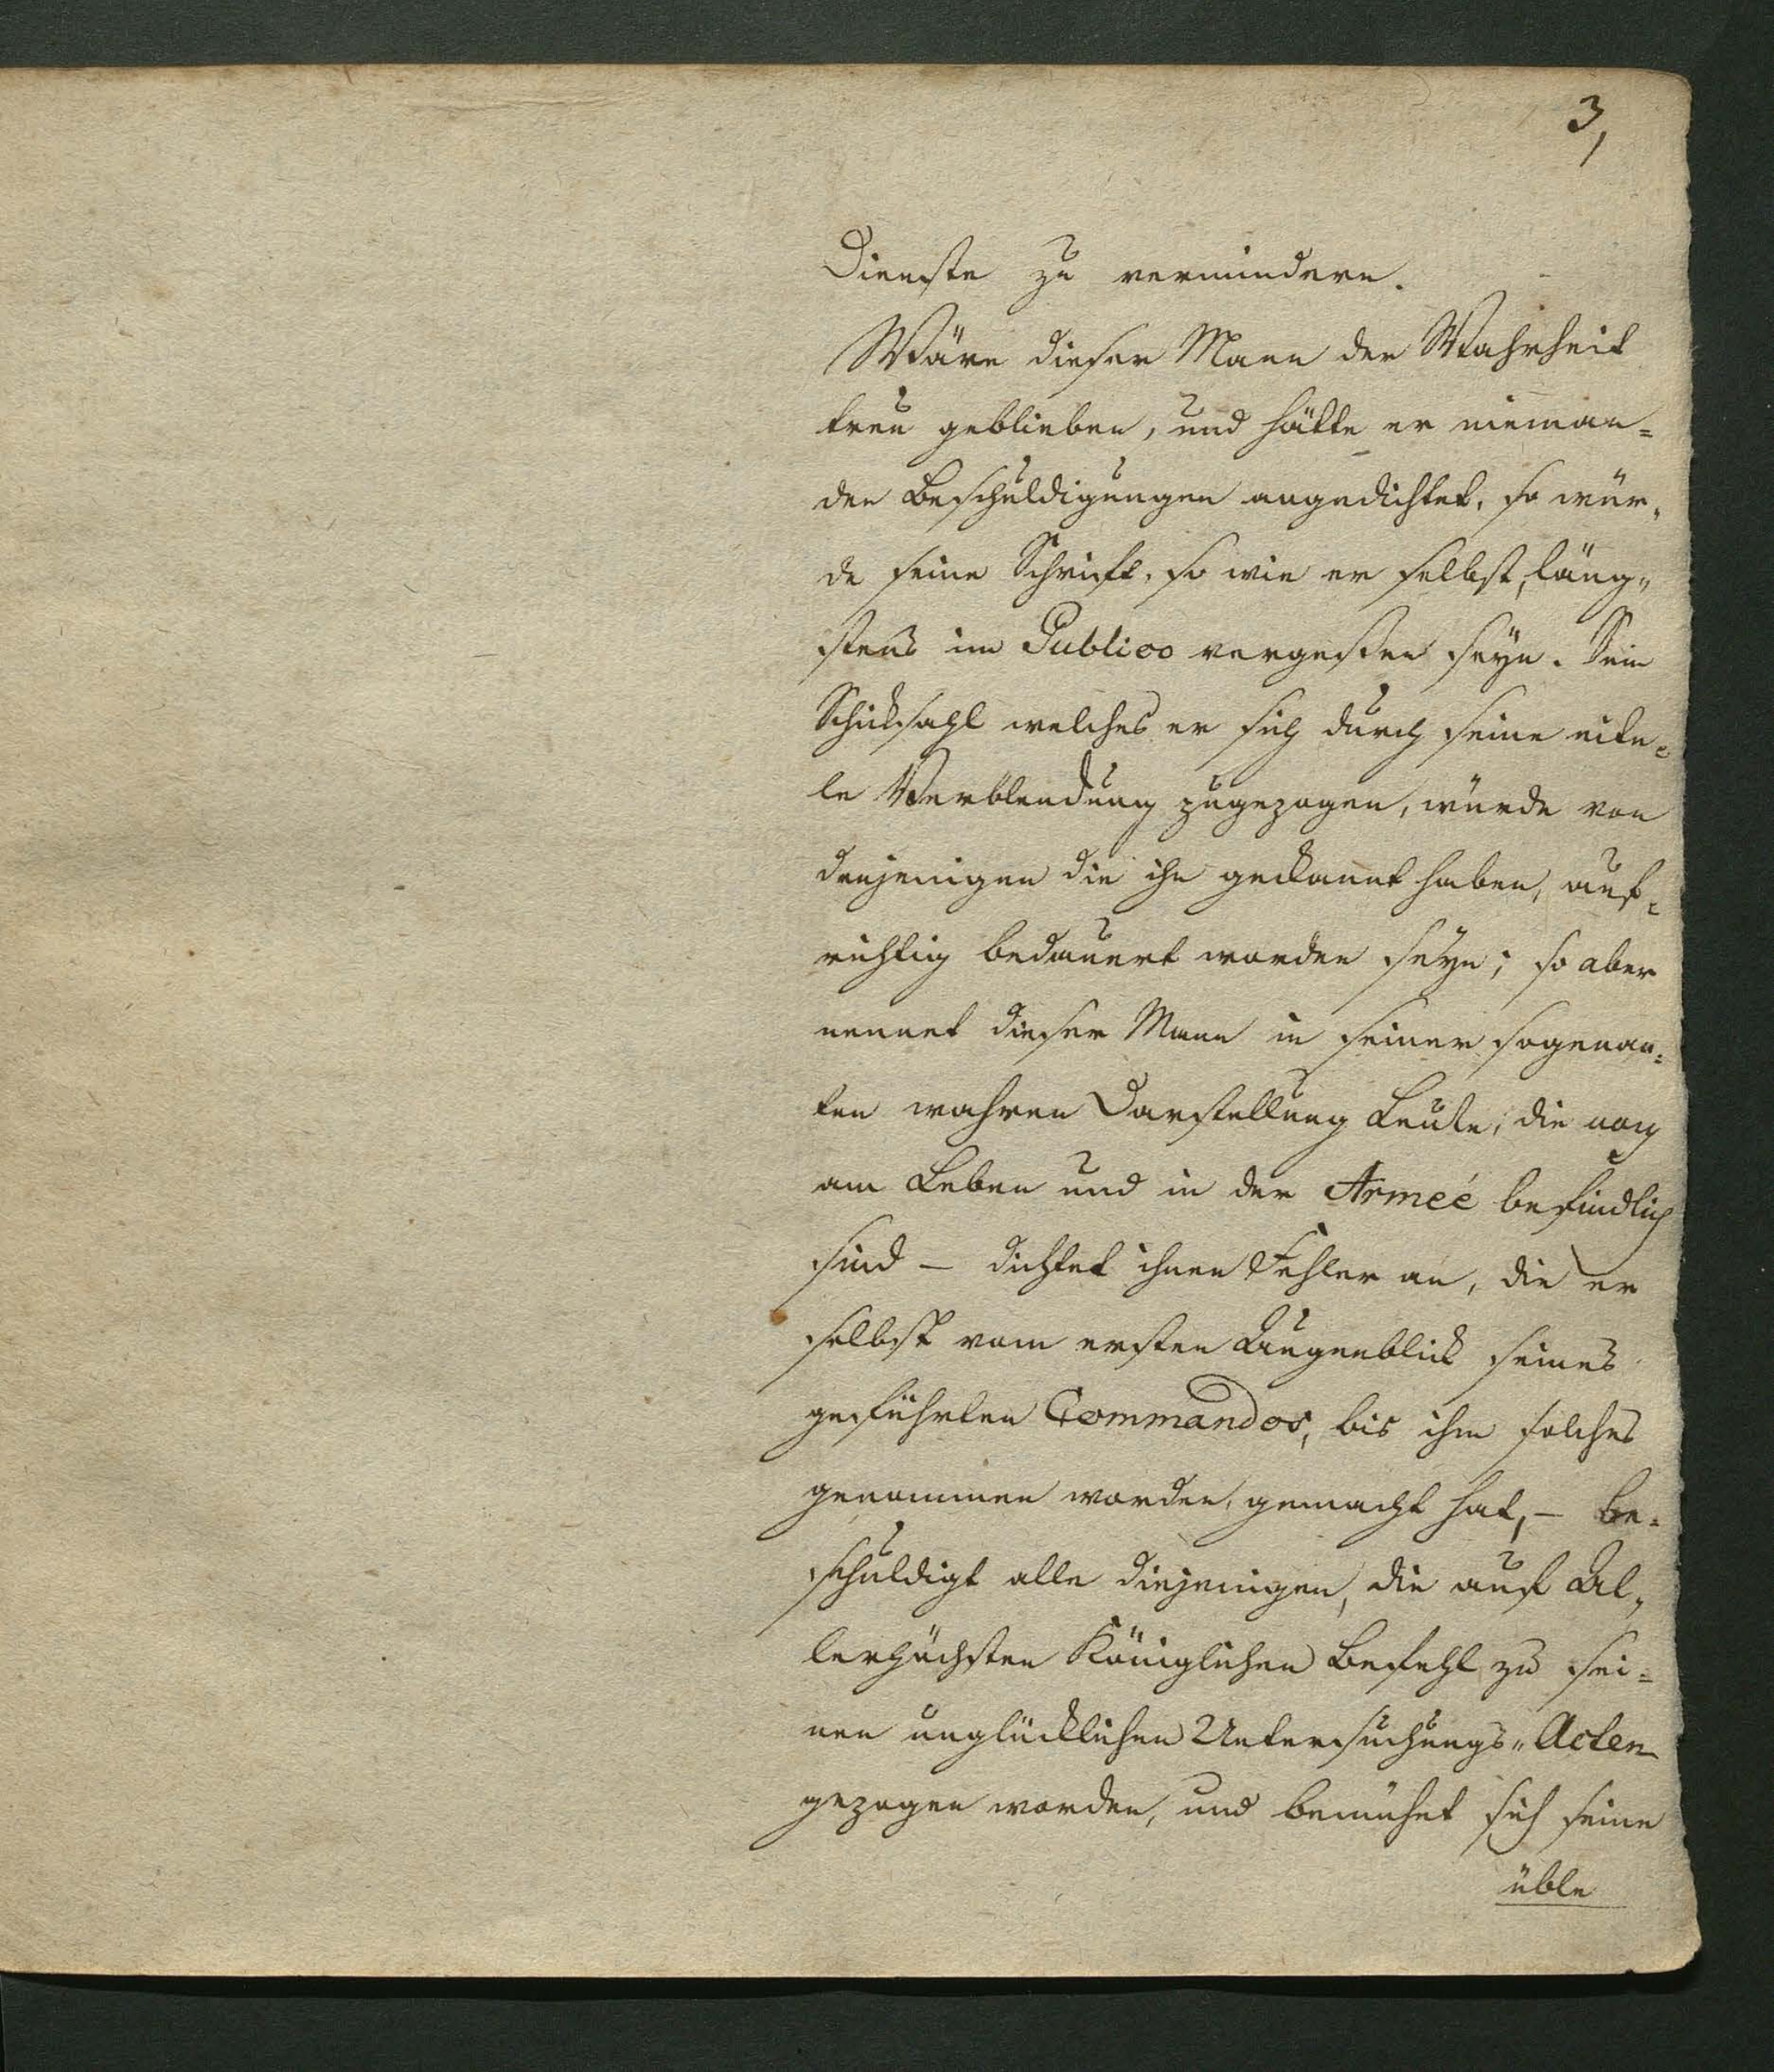 3,
Dienste zu vermindern.
Wäre dieser Mann der Wahrheit
treu geblieben, und hätte er nieman=
den Beschuldigungen angedichtet, so wür„
de seine Schrift, so wie er selbst, läng„
stens im Publico vergessen seyn. Sein
Schicksahl welches er sich durch seine eite=
le Verblendung zugezogen, würde von
denjenigen die ihn gekannt haben, auf=
richtig bedauert worden seyn; so aber
nennet dieser Mann in seiner sogenan=
ten wahren Darstellung Leute, die noch
am Leben und in der Armeé befindlich
sind – dichtet ihnen Fehler an, die er
selbst vom ersten Augenblick seines
geführten Commandos, bis ihm solches
genommen worden, gemacht hat, – be=
schuldigt alle diejenigen, die auf Al„
lerhöchsten Königlichen Befehl zu sei=
nen unglücklichen Untersuchungs„Acten
gezogen worden, und bemühet sich seine
üble